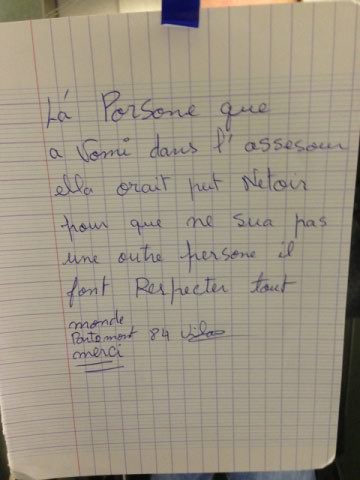 La Porsone que
a Vomi dans l'assesour
ella orait put Netoir
pour que ne sua pas
une outre persone il
font Respecter tout
monde
Partemont 84
merci